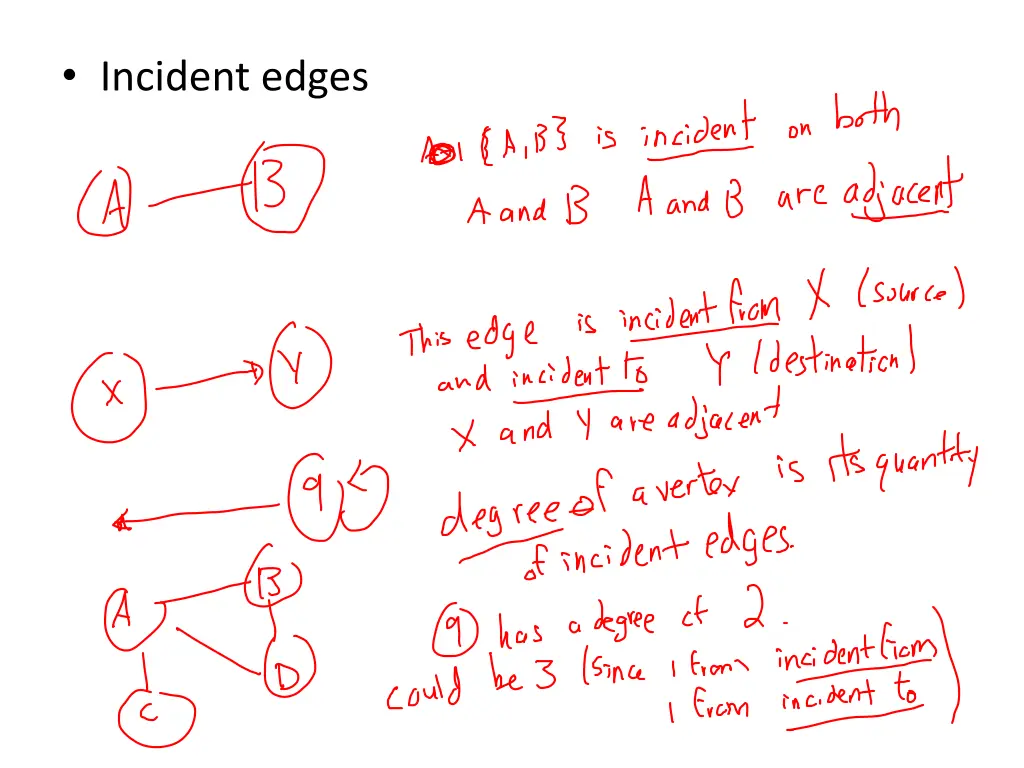 • Incident edges
{A,B} is incident on both
A and B A and B are adjacent
A B
This edge is incident from X (source)
and incident to Y (destination)
X and Y are adjacent
X Y
9
degree of a vertex is its quantity
of incident edges.
A B
C D
9 has a degree of 2.
could be 3 (since 1 from incident from
1 from incident to)